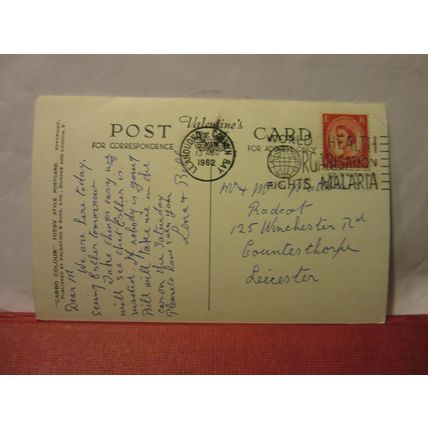 Valentine's
POST CARD
FOR CORRESPONDENCE
FOR ADDRESS ONLY
"CARBO COLOUR" TOPSY STYLE POSTCARD. COPYRIGHT.
PUBLISHED BY VALENTINE & SONS, LTD., DUNDEE AND LONDON.
LLANDUDNO COLWYN BAY
13 AUG
1962
WORLD HEALTH
ORGANISATION
FIGHTS MALARIA
E R
Dear M
We are here today,
seeing Esther tomorrow
Take things easy we
will see that Esther is
visited. If nobody is going
Bill will take me in the
car on the Saturday
Please have said you
Lena & Bill
Mr & Mrs
Radcot
125 Winchester Rd
Countesthorpe
Leicester